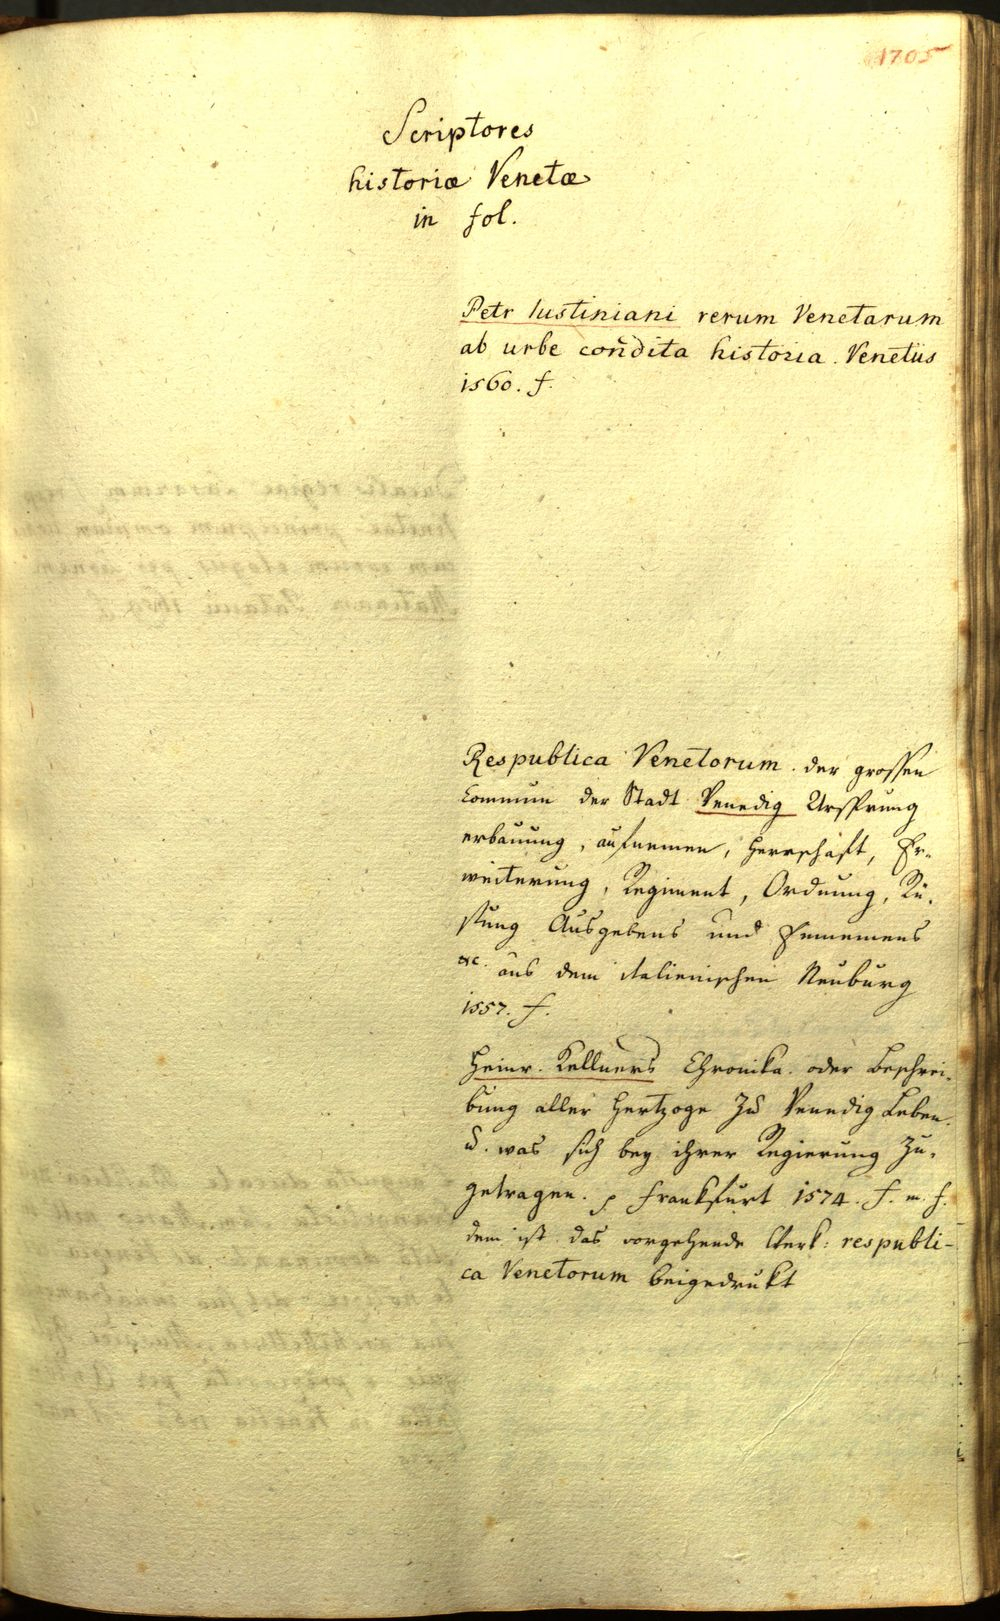 1705
Scriptores
historiæ Venetæ
in fol.
Petr Iustiniani rerum Venetarum
ab urbe condita historia. Venetiis
1560. f.
Respublica Venetorum. der grossen
Commun der Stadt Venedig Ursprung
erbauung, aufnemen, Herrschaft, Er-
weiterung, Regiment, Ordnung, Rü-
stung Ausgebens und Einnemens
&c. aus dem italienischen Neuburg
1557. f.
Heinr. Kellners Chronika. oder Beschrei-
bung aller Hertzoge zu Venedig Leben.
u. was sich bey ihrer Regierung zu-
getragen. Frankfurt 1574. f. m. f.
dem ist das vorgehende Werk: respubli-
ca Venetorum beigedrukt